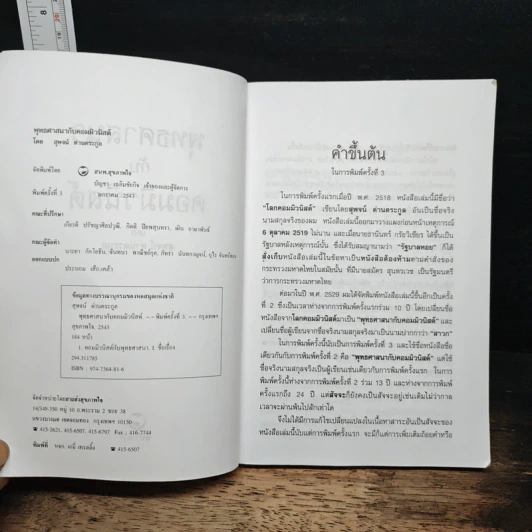 พุทธศาสนากับคอมมิวนิสต์
โดย สุพจน์ ด่านตระกูล
จัดพิมพ์โดย สนพ.สุขภาพใจ
บัญชา เฉลิมชัยกิจ เจ้าของและผู้จัดการ
พิมพ์ครั้งที่ 3 กรกฎาคม 2543
คณะที่ปรึกษา
คณะผู้จัดทำ
ออกแบบปก
ประกอบ
ข้อมูลทางบรรณานุกรมของหอสมุดแห่งชาติ
สุพจน์ ด่านตระกูล
พุทธศาสนากับคอมมิวนิสต์ --พิมพ์ครั้งที่ 3 -- กรุงเทพฯ
สุขภาพใจ, 2543
184 หน้า
1. คอมมิวนิสต์กับพุทธศาสนา I. ชื่อเรื่อง
294.311785
ISBN : 974-7364-81-6
จัดจำหน่ายโดยสายส่งสุขภาพใจ
14/349-350 หมู่ 10 ถ.พระราม 2 ซอย 38
แขวงบางมด เขตจอมทอง กรุงเทพฯ 10150
☎ 415-2621, 415-6507, 415-6797 Fax : 416-7744
พิมพ์ที่ หจก. เอมี่ เทรดดิ้ง ☎ 415-6507
คำขึ้นต้น
ในการพิมพ์ครั้งที่ 3
ในการพิมพ์ครั้งแรกเมื่อปี พ.ศ. 2518 หนังสือเล่มนี้มีชื่อว่า
"โลกคอมมิวนิสต์" เขียนโดยสุพจน์ ด่านตระกูล อันเป็นชื่อจริง
นามสกุลจริงของผม หนังสือเล่มนี้ออกมาวางแผงก่อนหน้าเหตุการณ์
6 ตุลาคม 2519 ไม่นาน และเมื่อนายธานินทร์ กรัยวิเชียร ได้ขึ้นเป็น
รัฐบาลหลังเหตุการณ์นั้น ซึ่งได้รับสมญานามว่า "รัฐบาลหอย" ก็ได้
สั่งเก็บหนังสือเล่มนี้ในข้อหาเป็นหนังสือต้องห้ามตามคำสั่งของ
กระทรวงมหาดไทยในสมัยนั้น ที่มีนายสมัคร สุนทรเวช เป็นรัฐมนตรี
ว่าการกระทรวงมหาดไทย
ต่อมาในปี พ.ศ. 2529 ผมได้จัดพิมพ์หนังสือเล่มนี้ขึ้นอีกเป็นครั้ง
ที่ 2 ซึ่งเป็นเวลาห่างจากการพิมพ์ครั้งแรกร่วม 10 ปี โดยเปลี่ยนชื่อ
หนังสือจากโลกคอมมิวนิสต์มาเป็น "พุทธศาสนากับคอมมิวนิสต์" และ
เปลี่ยนชื่อผู้เขียนจากชื่อจริงนามสกุลจริงมาเป็นนามปากกาว่า "สาวก"
ในการพิมพ์ครั้งนี้นับเป็นการพิมพ์ครั้งที่ 3 และใช้ชื่อหนังสือชื่อ
เดียวกันกับการพิมพ์ครั้งที่ 2 คือ "พุทธศาสนากับคอมมิวนิสต์" แต่ใช้
ชื่อจริงนามสกุลจริงเป็นผู้เขียนเช่นเดียวกับการพิมพ์ครั้งแรก ในการ
พิมพ์ครั้งนี้ห่างจากการพิมพ์ครั้งที่ 2 ร่วม 13 ปี และห่างจากการพิมพ์
ครั้งแรกถึง 24 ปี แต่สัจจะก็ยังคงเป็นสัจจะอยู่เช่นเดิมไม่ว่ากาล
เวลาจะผ่านพ้นไปสักเท่าใด
จึงไม่ได้มีการแก้ไขเปลี่ยนแปลงในเนื้อหาสาระอันเป็นสัจจะของ
หนังสือเล่มนี้นับแต่การพิมพ์ครั้งแรก จะมีก็แต่การเพิ่มเติมถ้อยคำหรือ